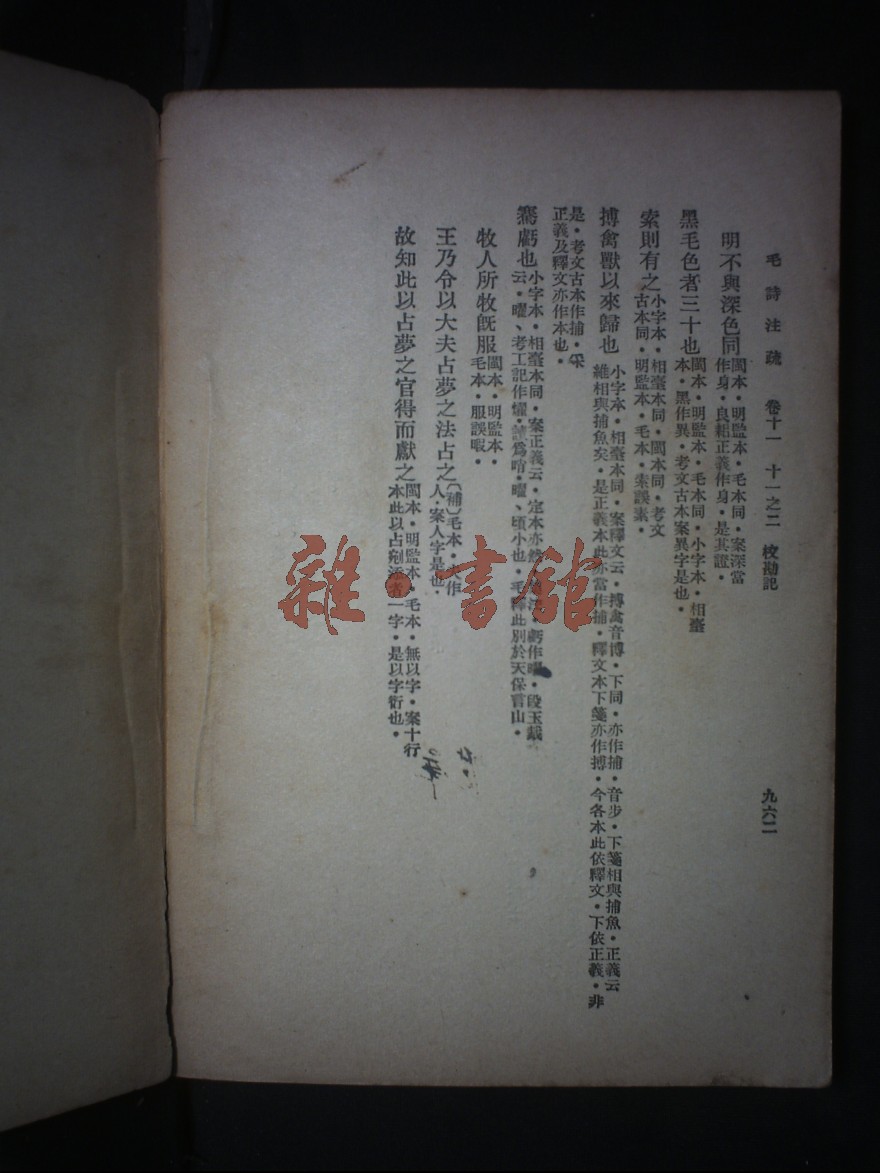 毛詩注疏 卷十一 十一之二 校勘記 九六二
明不與深色同閩本・明監本・毛本同・案深當
作身・良耜正義作身・是其證・
黑毛色者三十也閩本・明監本・毛本同・小字本・相臺
本・黑作異・考文古本案異字是也・
索則有之小字本・相臺本同・閩本同・考文
古本同・明監本・毛本・索誤素・
搏禽獸以來歸也小字本・相臺本同・案釋文云・搏禽音博・下同・亦作捕・音步・下箋相與捕魚・正義云
維相與捕魚矣・是正義本此亦當作捕・釋文本下箋亦作搏・今各本此依釋文・下依正義・非
是・考文古本作捕・采
正義及釋文亦作本也・
騫虧也小字本・相臺本同・案正義云・定本亦然・虧作曜・段玉裁
云・曜、考工記作燿・讀爲哨・曜、頃小也・毛釋此別於天保言山・
牧人所牧既服閩本・明監本・
毛本・服誤暇・
王乃令以大夫占夢之法占之〔補〕毛本・大作
人・案人字是也・
故知此以占夢之官得而獻之閩本・明監本・毛本・無以字・案十行
本此以占剜添者一字・是以字衍也・
雜・書館